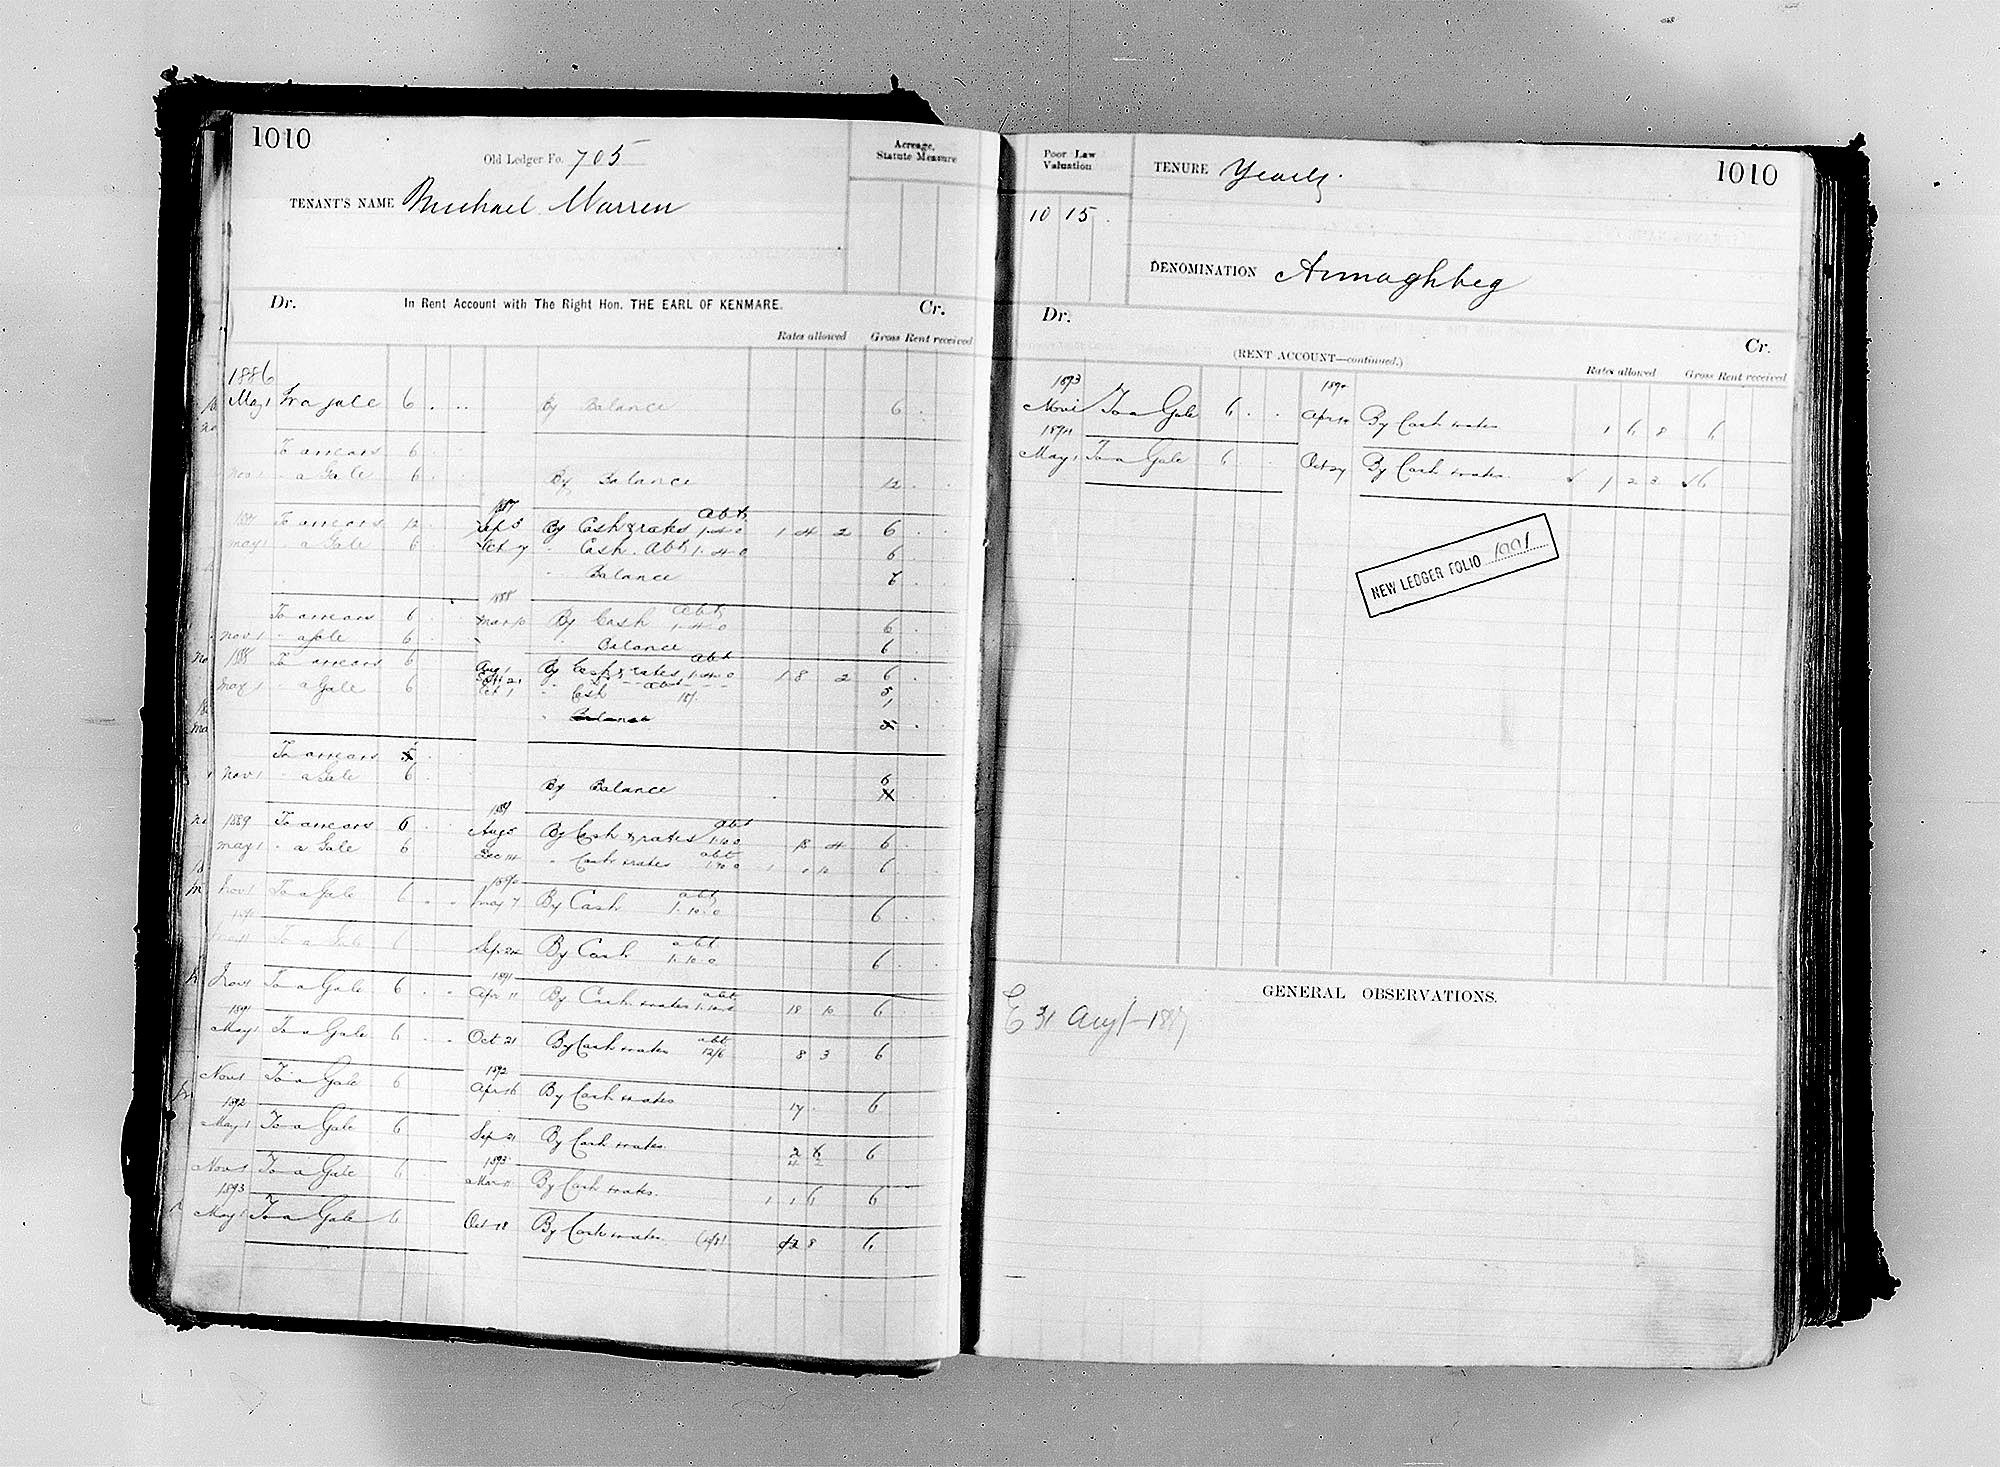 1010
Old Ledger Fo. 705
Acreage,
Statute Measure
TENANT'S NAME Michael Warren
Dr. In Rent Account with The Right Hon. THE EARL OF KENMARE. Cr.
Rates allowed Gross Rent received
1886
May 1 To a gale 6 . .. By Balance 6 .
To arrears 6
Nov 1 " a Gale 6 By Balance 12
1887 To arrears 12 1887 Sep 5 By Cash & rates abt 1-4-0 1 4 2 6
May 1 " a Gale 6 Oct 7 " Cash. Abt 1-4-0 6
" Balance 6
To arrears 6 1888 Mar 10 By Cash Abt 1-4-0 6
Nov 1 " a gale 6 " Balance 6
1888 To arrears 6 Aug 1 By Cash & rates abt 1-4-0 1 8 2 6
May 1 " a Gale 6 Sept 21 5
Oct 1 " Cash 1
" Balance 5
To arrears 5
Nov 1 " a Gale 6 By Balance 6
1889 To arrears 6 1889 Aug 5 By Cash & rates abt 1-10-0 18 4 6
May 1 " a Gale 6 Dec 14 " Cash & rates abt 1-10-0 1 1 10 6
Nov 1 To a Gale 6 . . 1890 May 7 By Cash abt 1-10-0 6
1890
May 1 To a Gale 6 Sep 24 By Cash abt 1-10-0 6
Nov 1 To a Gale 6 . . 1891 Apr 11 By Cash & rates abt 1-10-0 18 10 6
1891
May 1 To a Gale 6 . . Oct 21 By Cash & rates abt 12/6 8 3 6
Nov 1 To a Gale 6 1892 Apr 16 By Cash & rates 17 . 6
1892
May 1 To a Gale 6 Sep 21 By Cash & rates 2 6 6
4 2
Nov 1 To a Gale 6 1893 Mar 11 By Cash & rates 1 1 6 6
1893
May 1 To a Gale 6 Oct 18 By Cash & rates (4/8) 12 8 6
Poor Law
Valuation
10 15
TENURE Yearly.
1010
DENOMINATION Anmaghbeg
Dr. Cr.
(RENT ACCOUNT—continued.)
Rates allowed Gross Rent received
1893 1894
Nov 1 To a Gale 6 . . Apr 14 By Cash & rates 1 6 8 6
1894
May 1 To a Gale 6 Oct 27 By Cash & rates 1 2 3 6
NEW LEDGER FOLIO 1001
GENERAL OBSERVATIONS.
E 31 Augt 1887